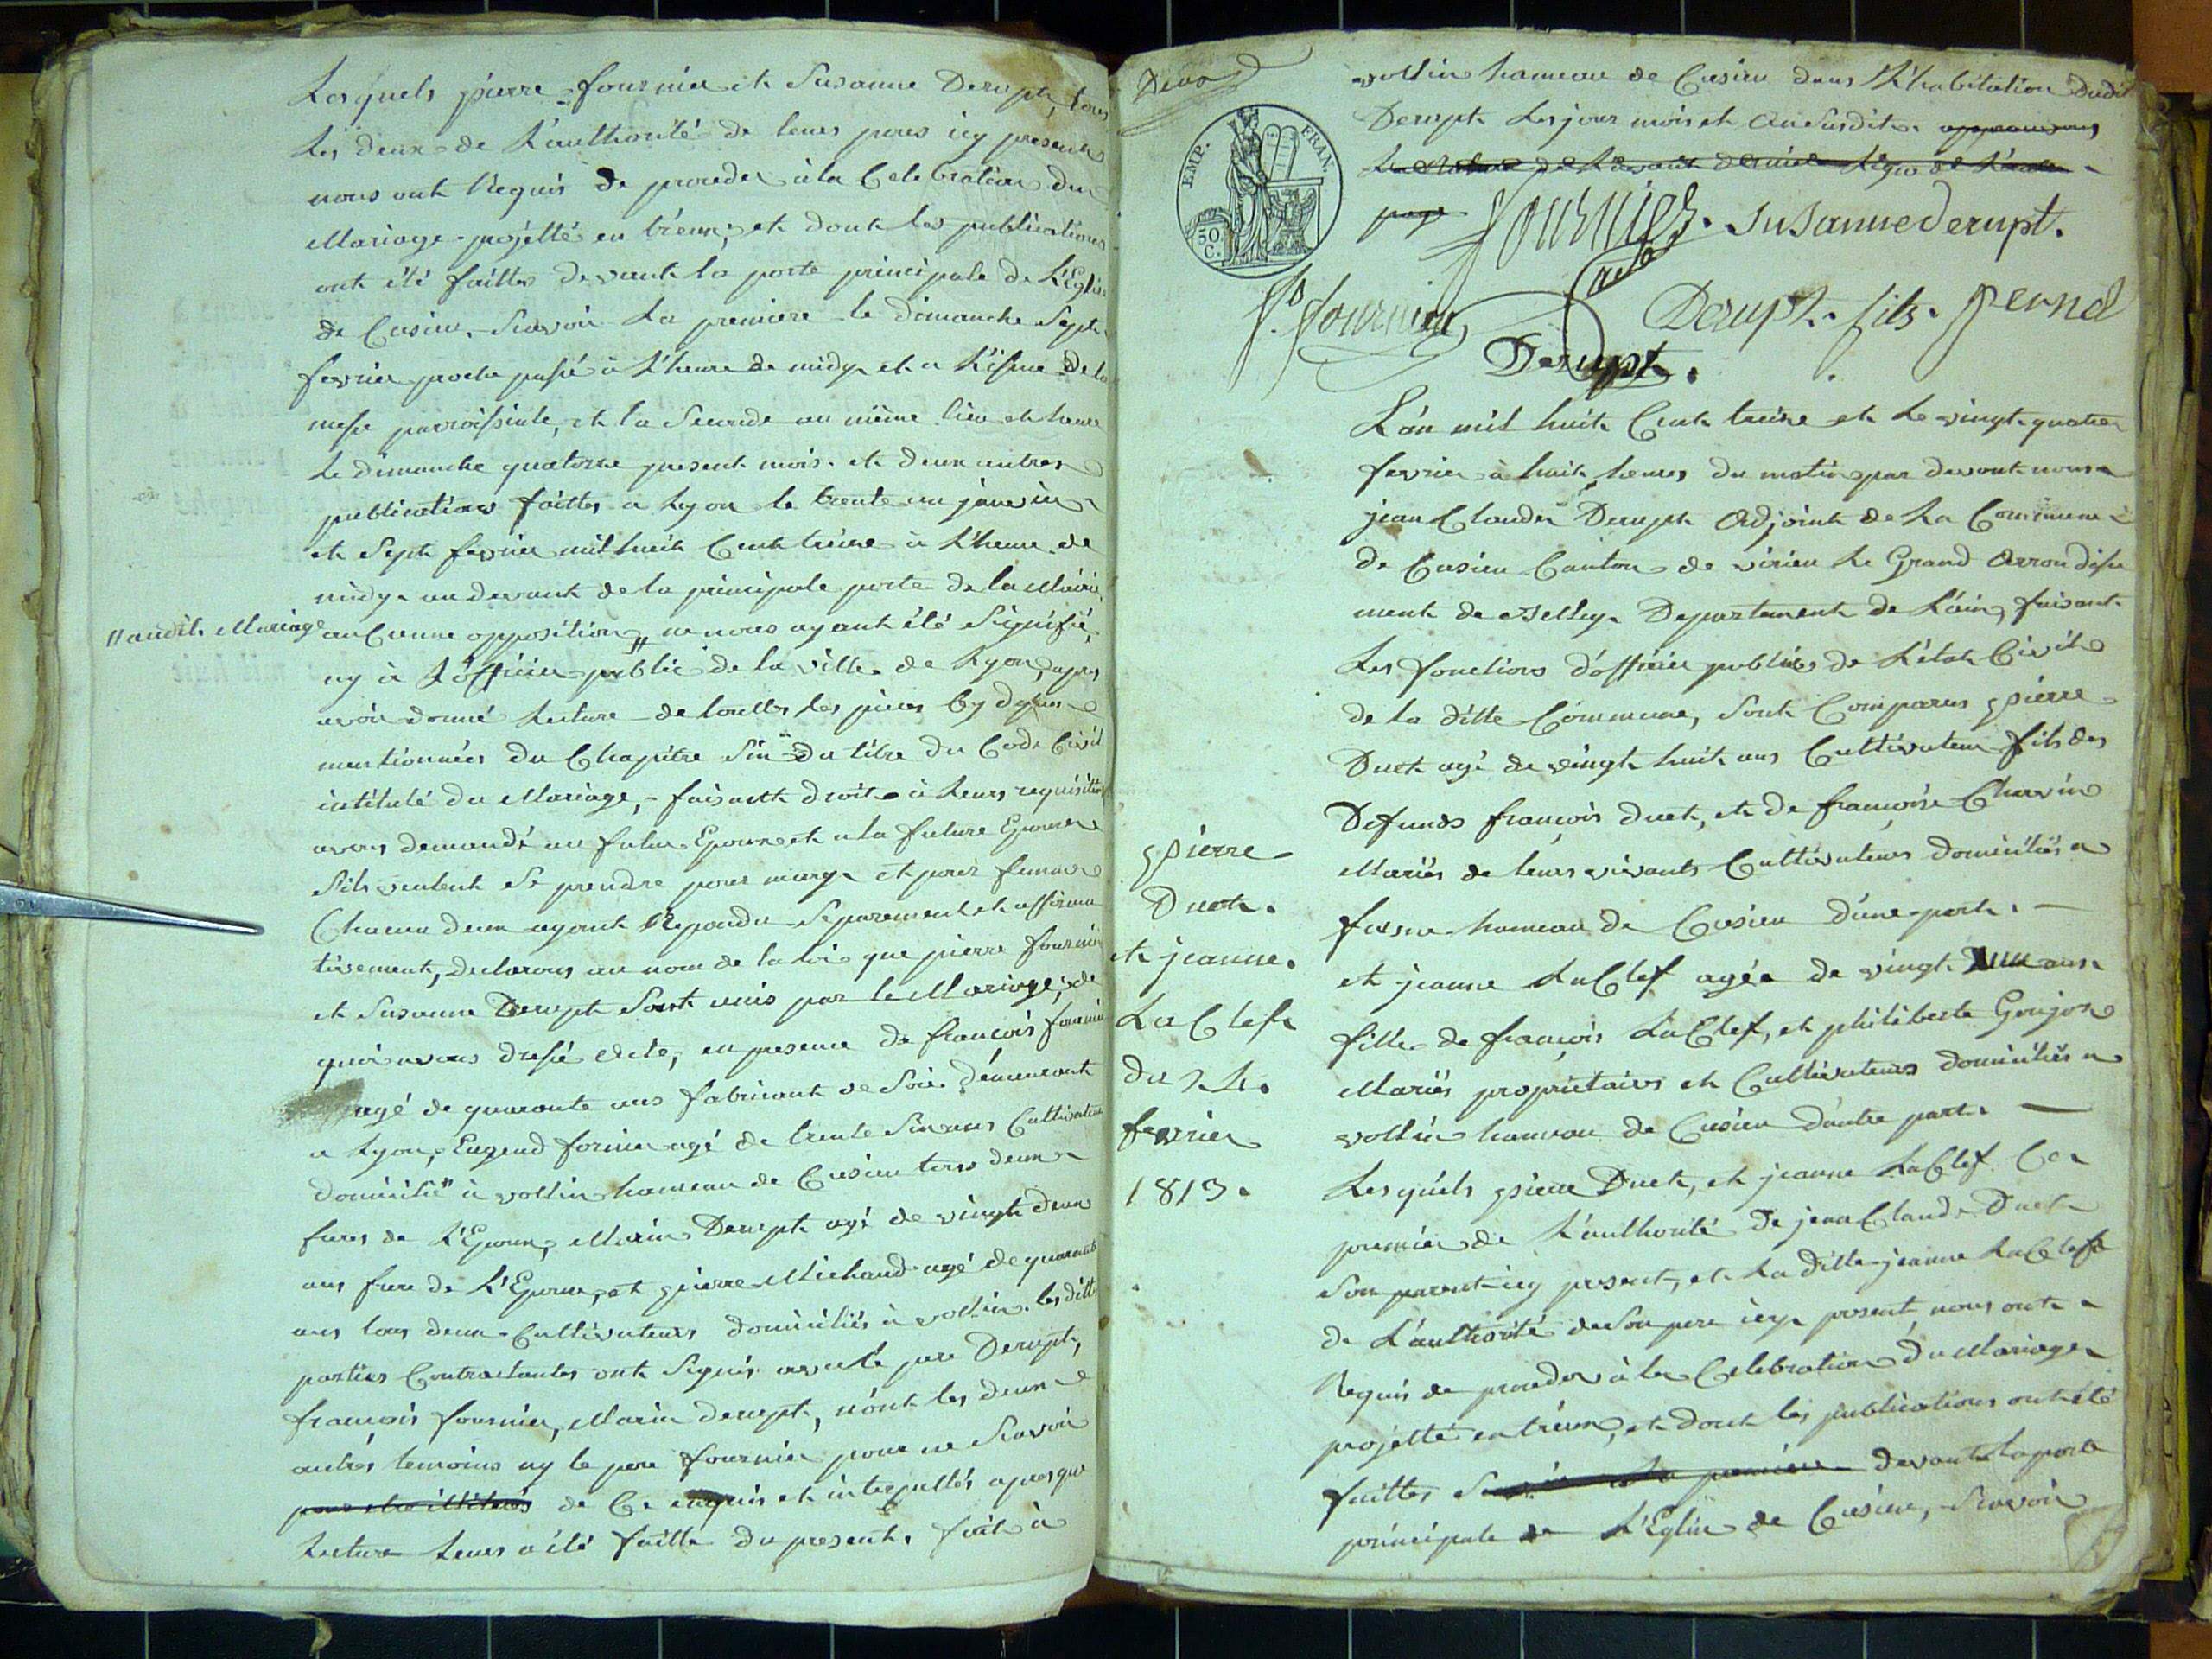 Lesquels pierre fournier et Susanne Derupt, tous
les deux de L'authorité de leurs peres icy presents
nous ont Requis de proceder à la Celebration du
Mariage projetté en treux, et dont les publications
ont été faittes devant la porte principale de L'Eglise
de Cusieu, Scavoir La premiere le dimanche Sept
fevrier proche passé à L'heure de midy et a L'issue de la
messe parroissiale, et la Seconde au même lieu et heure
Le dimanche quatorze present mois. et deux autres
publications faittes a Lyon le trente un janvier
et Sept fevrier mil huit Cent treize à L'heure de
midy au devant de la principale porte de la Mairie
// audit Mariage
auCunne opposition // ne nous ayant été Signifié,
ny à L'officier public de la ville de Lyon, apres
avoir donné Lecture de touttes les pieces Cy dessus
mentionnées du Chapitre Six du titre du Code Civil
intitulé du Mariage, faisant droit à leurs requisitions
avons demandé au futur Epoux et a la future Epouse
S'ils veulent Se prendre pour mary et pour femme
Chacun deux ayant Repondu Separement et affirma
tivement, declarons au nom de la loi que pierre fournier
et Susanne Derupt Sont unis par le Mariage, de
quoi avons dressé acte, en presence de francois fournier
agé de quarante ans fabricant de Soie demeurant
a Lyon, Eugend fornier agé de trente Six ans Cultivateur
domicilié à vollin hameau de Cusieu tous deux
freres de L'Epoux, Marin Derupt agé de vingt deux
ans frere de L'Epouse, et pierre Michaud agé de quarante
ans tous deux Cultivateurs domiciliés à vollin. les dittes
parties Contractantes ont Signés avec le pere Derupt,
francois fournier, Marin derupt, n'ont les deux
autres temoins ny le pere fournier pour ne Scavoir
pour etre illiterés de Ce enquis et interpellés apres que
Lecture Leurs a été faitte du present. fait à
vollin hameau de Cusieu dans L'habitation dudit
Derupt Les jour mois et an Susdits. approuvons
page
EMP. FRAN.
50 C.
fournier. Susanne derupt.
f. fournier Derupt fils. pernd
Derupt.
L'an mil huit Cent treize et Le vingt quatre
fevrier à huit heures du matin par devant nous
jean Claude Derupt Adjoint de La Commune
de Cusieu Canton de virieu Le Grand Arrondisse
ment de Belley Departement de L'ain, faisant
Les fonctions d'officier public de L'état Civil
de la ditte Commune, Sont Comparus pierre
Duet agé de vingt huit ans Cultivateur fils des
Defunds françois duet, et de françoise Charvin
Mariés de leurs vivants Cultivateurs domiciliés a
hameau de Cusieu d'une part. —
et jeanne LaClef agée de vingt ans
fille de françois LaClef, et philiberte Goujon
Mariés proprietaires et Cultivateurs domiciliés a
vollin hameau de Cusieu d'autre part. —
Lesquels pierre Duet, et jeanne LaClef. Le
premier de L'authorité de jean Claude Duet
Son parent icy present, et La ditte jeanne LaClef
de L'authorité de Son pere icy present, nous ont
Requis de proceder à la Celebration du Mariage
projetté entr'eux, et dont les publications ont été
faittes Scavoir La premiere devant La porte
principale de L'Eglise de Cusieu, Scavoir
pierre
Duet.
et jeanne.
LaClef
du 24.
fevrier
1813.